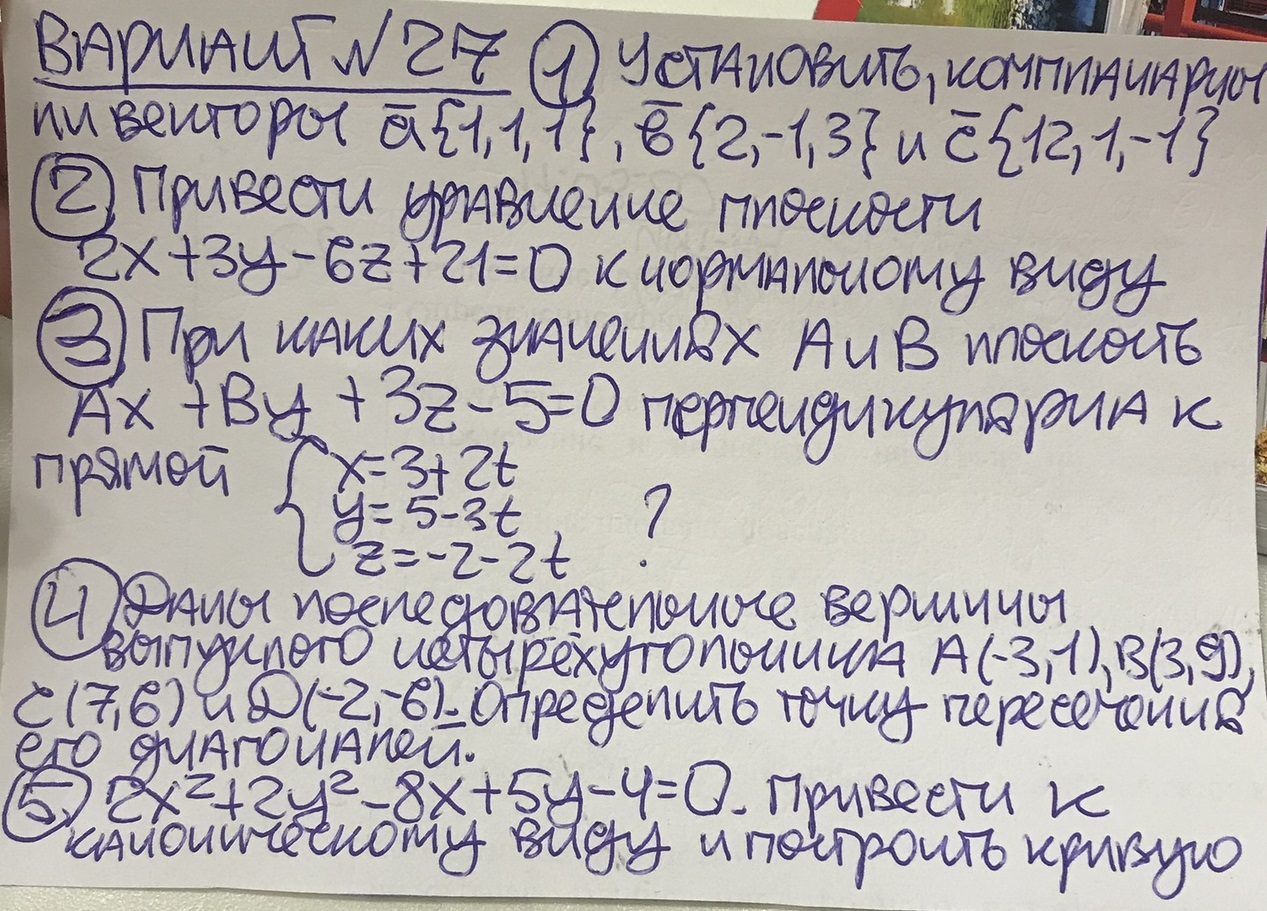 ВАРИАНТ №27 ① Установить, компланарны
ли векторы a̅{1,1,1}, b̅{2,-1,3} и c̅{12,1,-1}
② Привести уравнение плоскости
2x+3y-6z+21=0 к нормальному виду
③ При каких значениях А и В плоскость
Ax+By+3z-5=0 перпендикулярна к
прямой { x=3+2t
y=5-3t ?
z=-2-2t
④ Даны последовательные вершины
выпуклого четырёхугольника A(-3,1), B(3,9),
C(7,6) и D(-2,-6). Определить точку пересечения
его диагоналей.
⑤ 2x²+2y²-8x+5y-4=0. Привести к
каноническому виду и построить кривую